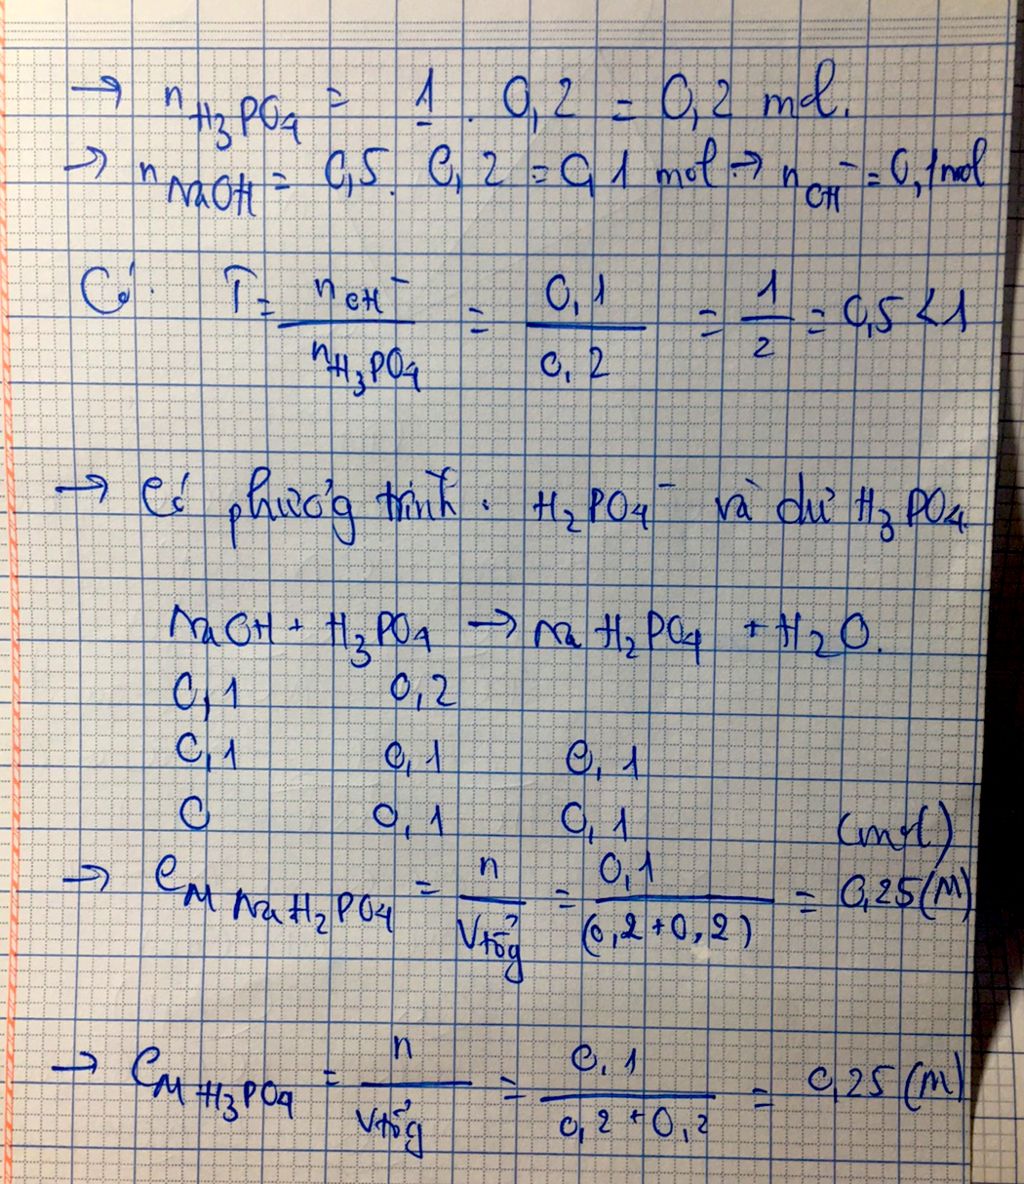 → nH₃PO₄ = 1 . 0,2 = 0,2 mol.
→ nNaOH = 0,5 . 0,2 = 0,1 mol → nOH⁻ = 0,1 mol
Có: T = nOH⁻ / nH₃PO₄ = 0,1 / 0,2 = 1 / 2 = 0,5 < 1
→ Có phương trình : H₂PO₄⁻ và dư H₃PO₄
NaOH + H₃PO₄ → NaH₂PO₄ + H₂O.
0,1 0,2
0,1 0,1 0,1
0 0,1 0,1 (mol)
→ CM NaH₂PO₄ = n / Vtổg = 0,1 / (0,2 + 0,2) = 0,25 (M)
→ CM H₃PO₄ = n / Vtổg = 0,1 / 0,2 + 0,2 = 0,25 (M)